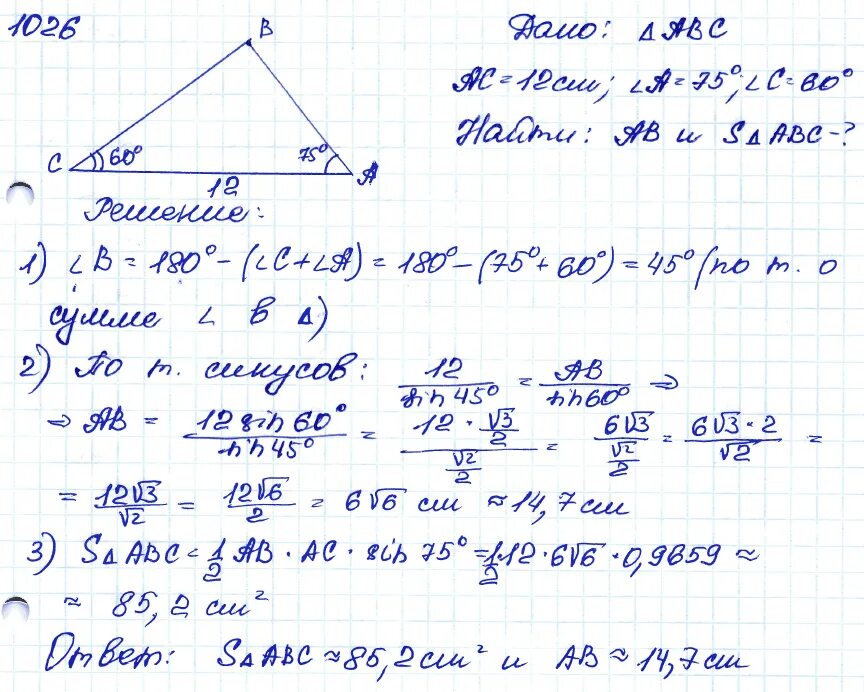 1026
B
C 60° 75° A
12
Дано: △ABC
AC = 12 см; ∠A = 75°, ∠C = 60°
Найти: AB и S△ABC - ?
Решение:
1) ∠B = 180° - (∠C + ∠A) = 180° - (75° + 60°) = 45° (по т. о
сумме ∠ в △)
2) По т. синусов: 12/sin 45° = AB/sin 60° ⇒
⇒ AB = 12 sin 60°/sin 45° = (12 · √3/2)/(√2/2) = 6√3/(√2/2) = 6√3 · 2/√2 =
= 12√3/√2 = 12√6/2 = 6√6 см ≈ 14,7 см
3) S△ABC = 1/2 AB · AC · sin 75° = 1/2 12 · 6√6 · 0,9659 ≈
≈ 85,2 см²
Ответ: S△ABC ≈ 85,2 см² и AB ≈ 14,7 см